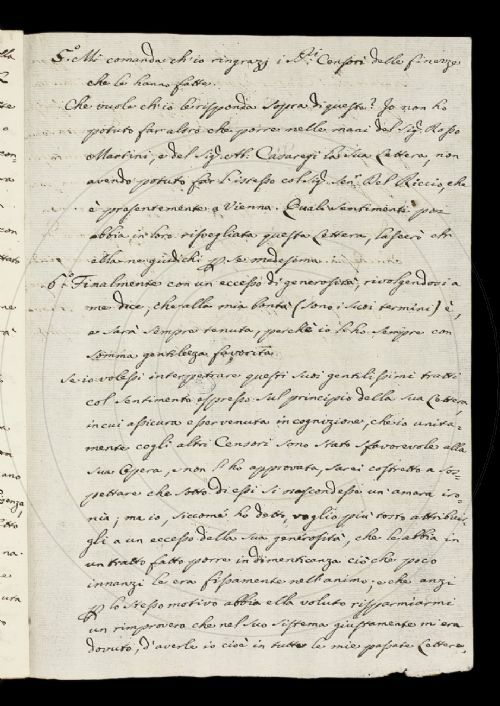 5.º Mi comanda ch'io ringrazj i SS.ri Censori delle finezze
che le hanno fatte.
Che vuole ch'io le risponda sopra di questo? Io non ho
potuto far altro che porre nelle mani del Sig. Rosso
Martini, e del Sig. Ab. Casaregi la sua Lettera, non
avendo potuto far l'istesso col Sig. Sen. Del Riccio, che
è presentemente a Vienna. Quali sentimenti poi
abbia in loro risvegliata questa Lettera, lascerò ch'
ella ne giudichi p se medesima.
6.º Finalmente con un eccesso di generosità, rivolgendosi a
me dice, che alla mia bontà (sono i suoi termini) è,
e sarà sempre tenuta, perchè io l'ho sempre con
somma gentilezza favorita.
Se io volessi interpetrare questi suoi gentilissimi tratti
col sentimento espresso sul principio della sua Lettera,
in cui assicura esser venuta in cognizione, che io unita-
mente cogli altri Censori sono stato sfavorevole alla
sua Opera, e non l'ho approvata, sarei costretto a sos-
pettare che sotto di essi si nascondesse un'amara iro-
nia; ma io, siccome ho detto, voglio più tosto attribuir-
gli a un eccesso della sua generosità, che le abbia in
un tratto fatto porre in dimenticanza ciò che poco
innanzi le era fissamente nell'animo; e che anzi
p lo stesso motivo abbia ella voluto risparmiarmi
un rimprovero che nel suo sistema giustamente m'era
dovuto, d'averle io cioè in tutte le mie passate Lettere,